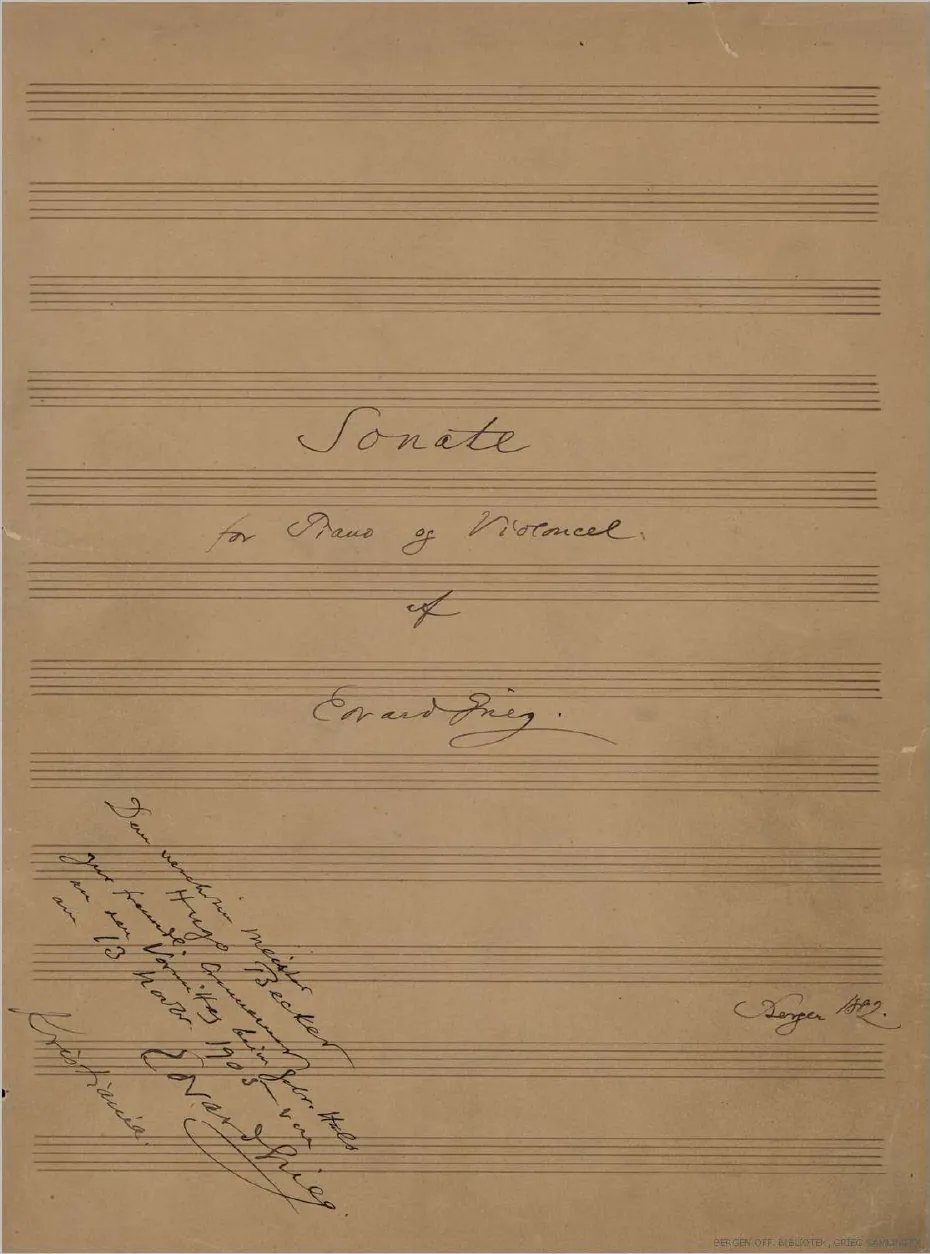 Sonate
for Piano og Violoncel.
af
Edvard Grieg.
Bergen 1882.
Dem verehrten Meister
Hugo Becker
zur freundl. Erinnerung
an den Vormittag beim Gebr. Hals
am 13 Novbr. 1903 von
Edvard Grieg.
Kristiania.
BERGEN OFF. BIBLIOTEK, GRIEG SAMLINGEN